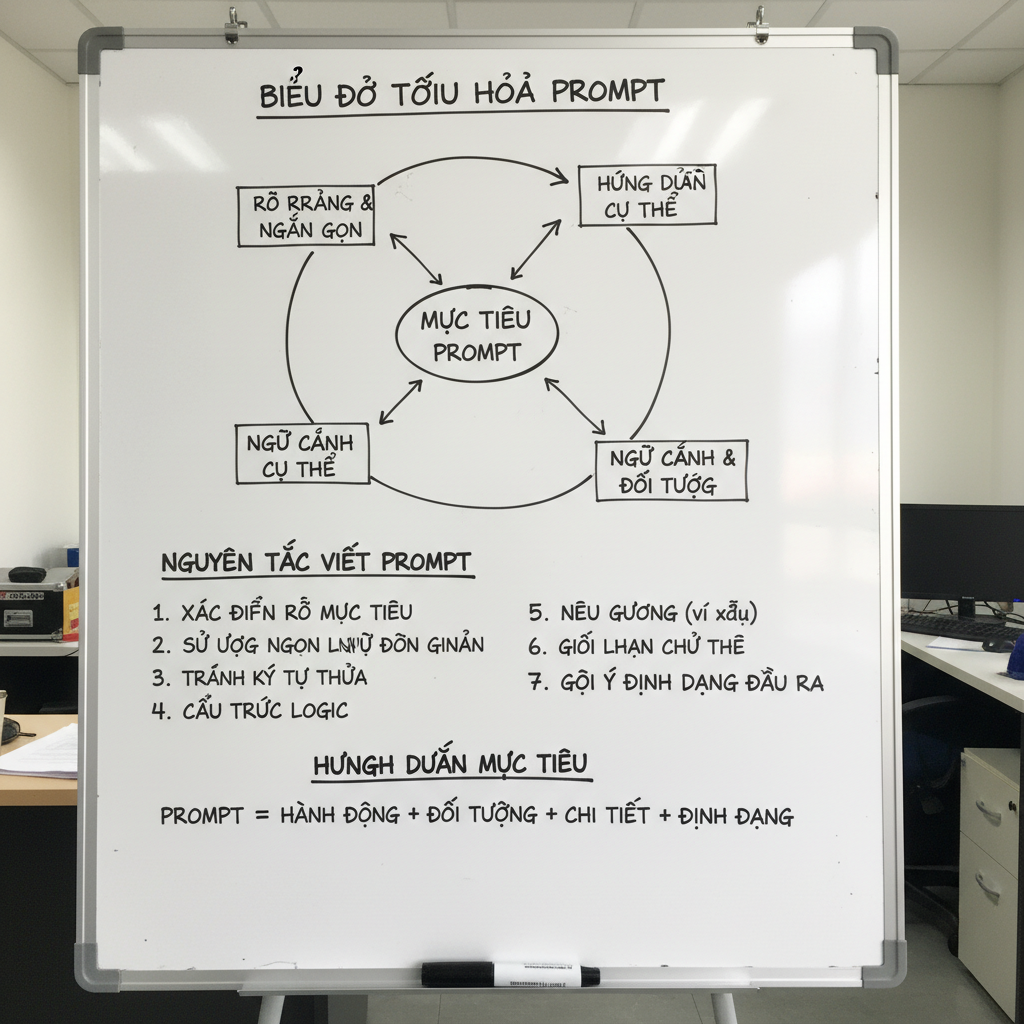 BIỂU ĐỞ TỐIU HỎẢ PROMPT
RÕ RRẢNG &
NGẮN GỌN
HỨNG DUẪN
CỤ THỂ
MỰC TIÊU
PROMPT
NGỮ CẢNH
CỤ THỂ
NGỮ CẢNH &
ĐỐI TƯỚG
NGUYÊN TẮC VIẾT PROMPT
1. XÁC ĐIỂN RÕ MỰC TIÊU
2. SỬ ƯỢG NGỌN ĐỠN GINẢN
3. TRÁNH KÝ TỰ THỬA
4. CẤU TRỨC LOGIC
5. NÊU GƯƠNG (ví xẫụ)
6. GIỐI LHẠN CHỬ THÊ
7. GỘI Ý ĐỊNH DẠNG ĐẦU RA
HƯNGH DƯẮN MỰC TIÊU
PROMPT = HÀNH ĐỘNG + ĐỐI TƯỢNG + CHI TIẾT + ĐỊNH ĐẠNG